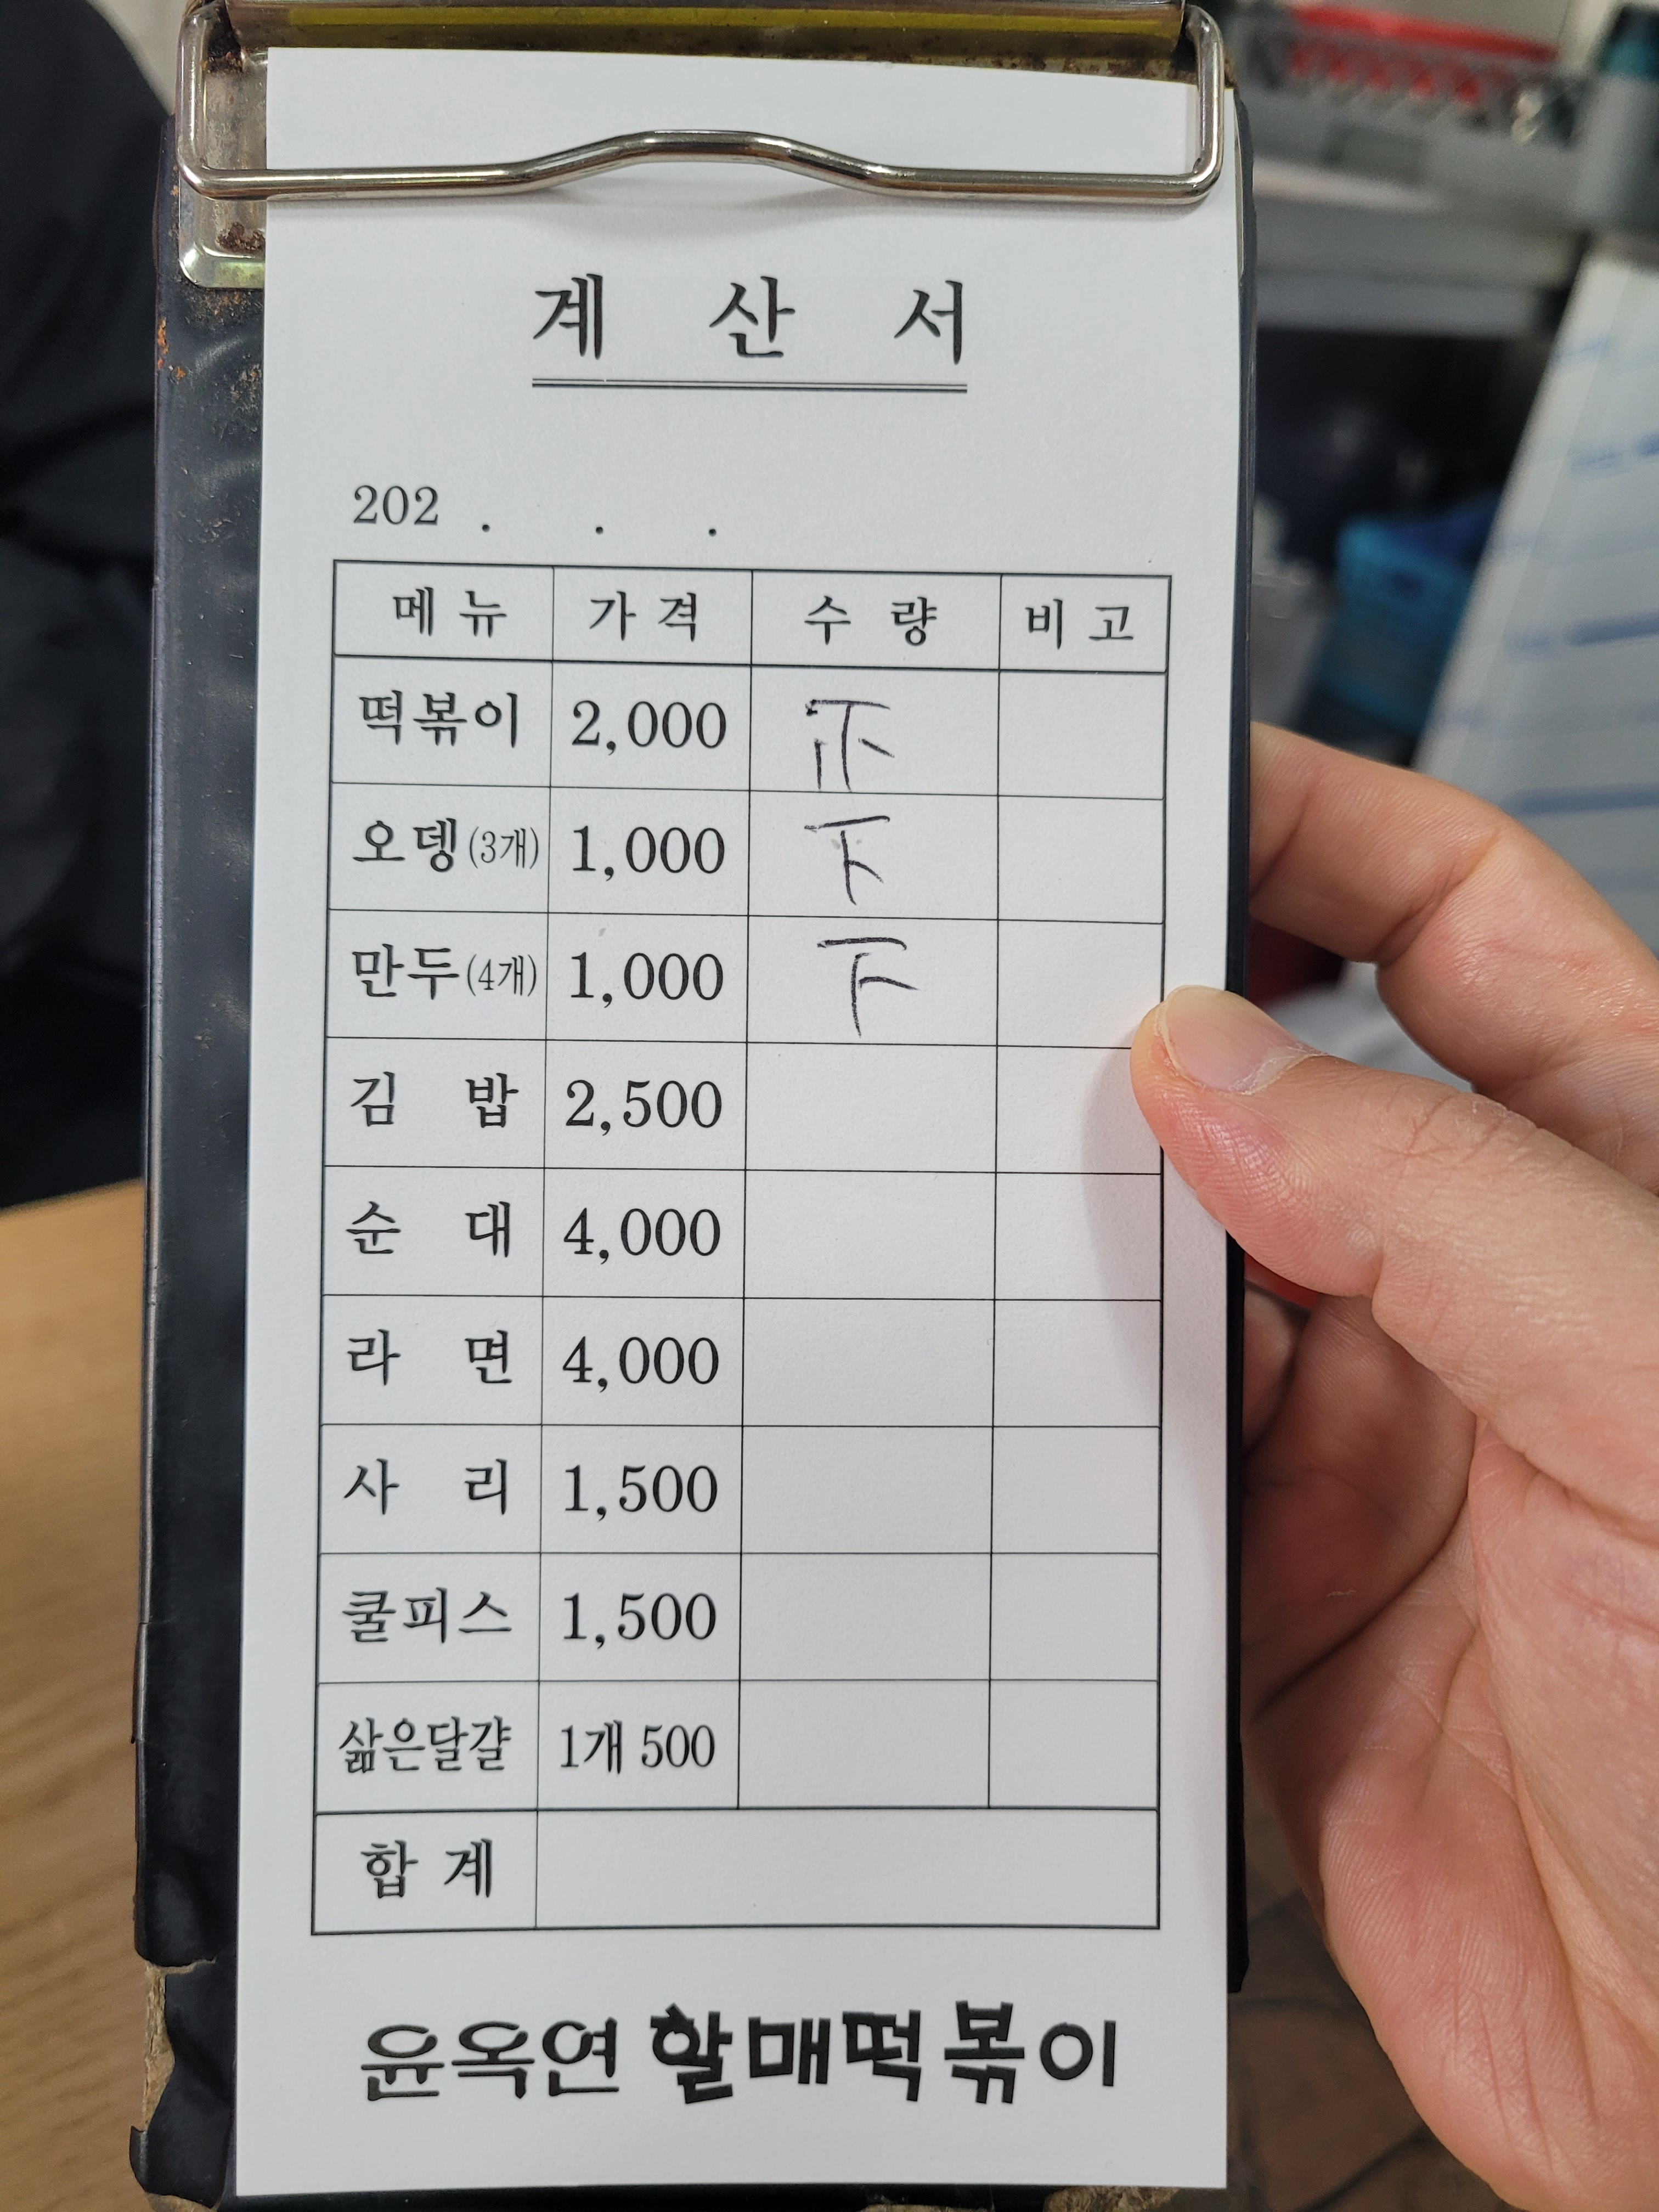 계 산 서
202 . . .
메 뉴 가 격 수 량 비 고
떡볶이 2,000 正
오뎅(3개) 1,000 下
만두(4개) 1,000 下
김 밥 2,500
순 대 4,000
라 면 4,000
사 리 1,500
쿨피스 1,500
삶은달걀 1개 500
합 계
윤옥연 할매떡볶이